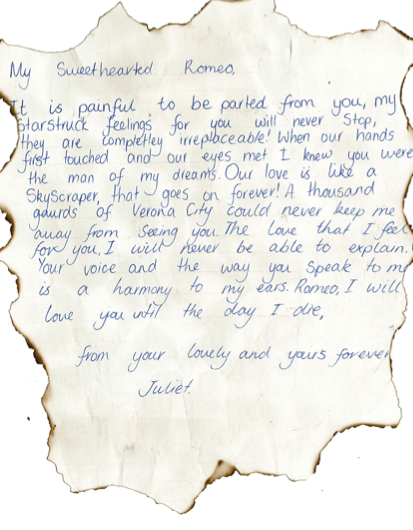 My Sweethearted Romeo,
It is painful to be parted from you, my
starstruck feelings for you will never stop,
they are completley irreplaceable! When our hands
first touched and our eyes met I knew you were
the man of my dreams. Our love is like a
SkyScraper, that goes on forever! A thousand
gaurds of Verona City could never keep me
away from seeing you. The love that I feel
for you, I will never be able to explain.
Your voice and the way you speak to me
is a harmony to my ears. Romeo, I will
love you until the day I die,
from your lovely and yours forever
Juliet.